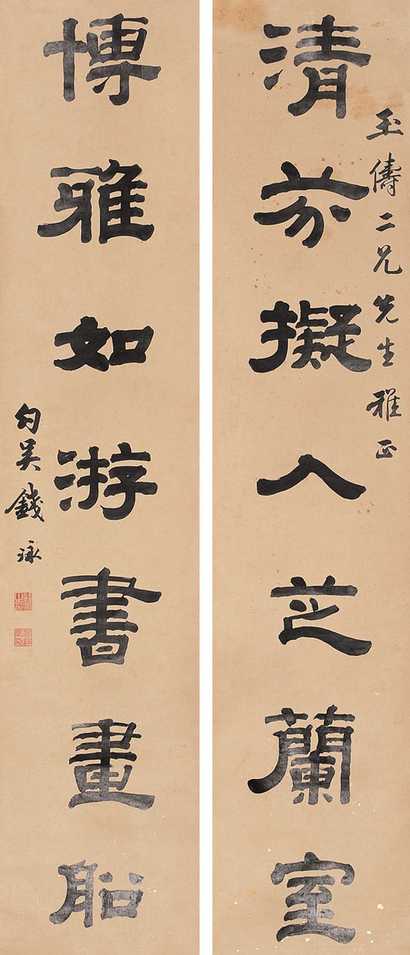 玉儔二兄先生雅正
清芬擬入芝蘭室
博雅如游書畫船
句吳錢泳